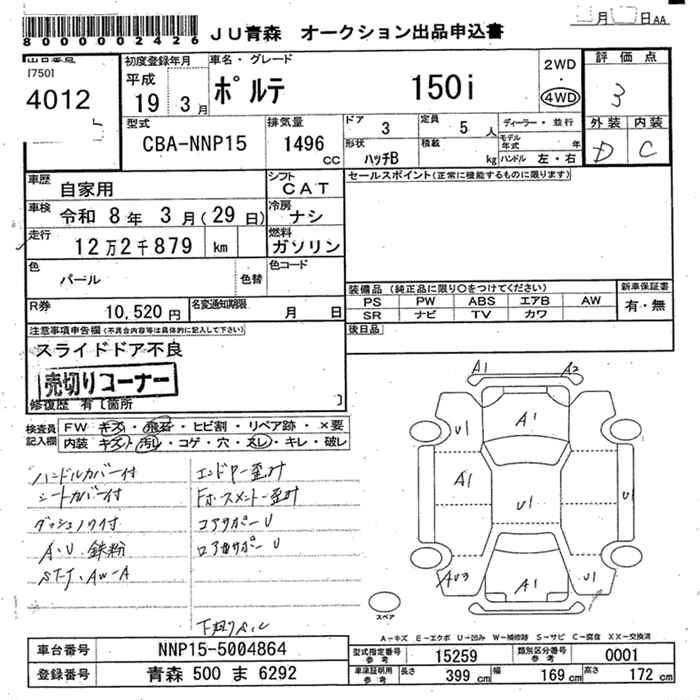 8000002426 JU青森 オークション出品申込書 月 日 AA
出品番号 初度登録年月 車名・グレード 評価点
17501 平成 ポルテ 150i 2WD・4WD 3
4012 19 3月
型式 排気量 ドア 定員 ディーラー・並行 外装 内装
CBA-NNP15 1496 CC 3 5人 モデル年式 年 D C
形状 積載 ハッチB kg ハンドル 左・右
車歴 自家用 シフト CAT セールスポイント(正常に機能するものに限ります)
車検 令和 8年 3月(29日) 冷房 ナシ
走行 12万2千879 km 燃料 ガソリン
色 パール 色替 色コード
装備品 (純正品に限り○をつけてください) 新車保証書
R券 10,520円 名変通知期限 月 日 PS PW ABS エアB AW 有・無
SR ナビ TV カワ
注意事項申告欄(不具合内容等は具体的に記入して下さい) 後日品
スライドドア不良
売切りコーナー
修復歴 有〔箇所 〕
検査員 FW キズ・飛石・ヒビ割・リペア跡・×要
記入欄 内装 キズ・汚レ・コゲ・穴・スレ・キレ・破レ
ハンドルカバー付
シートカバー付
A・U 鉄粉
コアサポーU
A1 A2
U1 A1
A1 U1 U1
A1 U1
スペア
A－キズ E－エクボ U－凹み W－補修跡 S－サビ C－腐食 XX－交換済
車台番号 NNP15-5004864 型式指定番号 参考 15259 類別区分番号 参考 0001
登録番号 青森 500 ま 6292 車庫証明用 参考 長さ 399 cm 幅 169 cm 高さ 172 cm